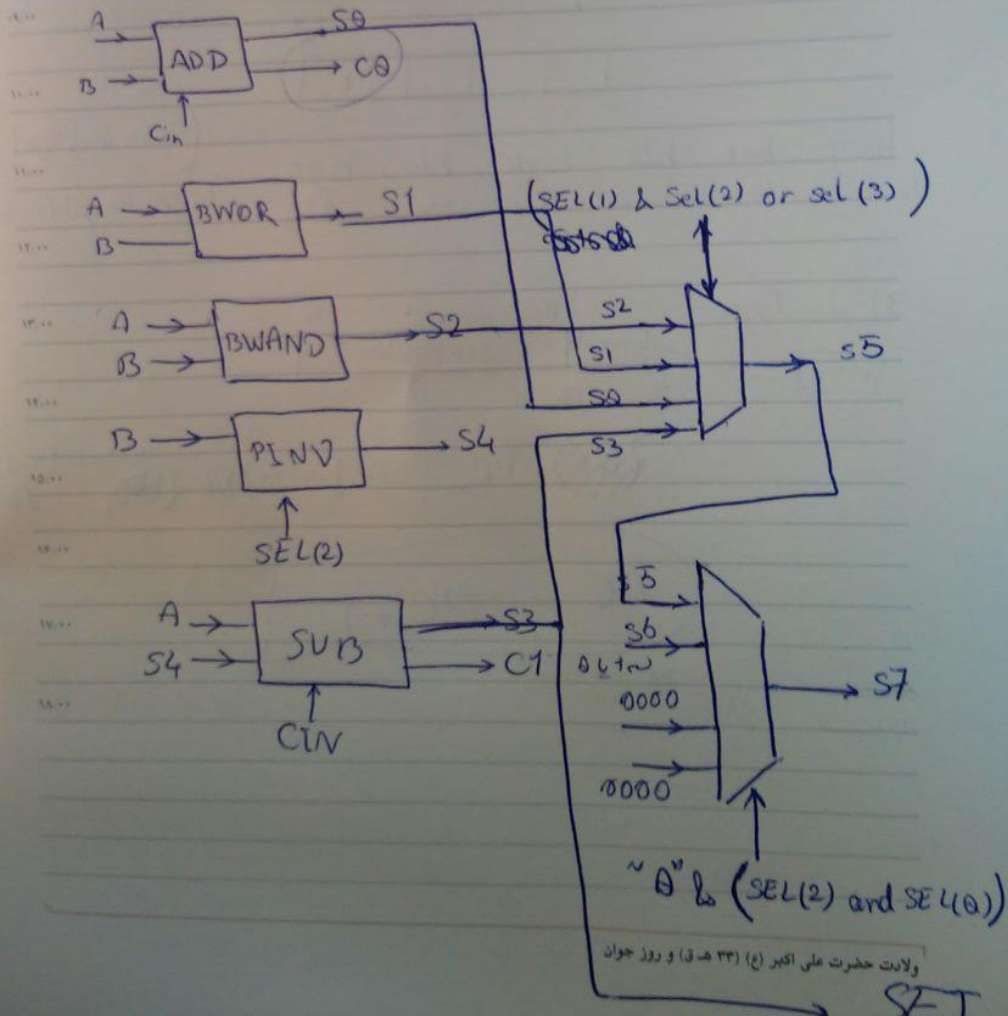 A
ADD
S0
C0
B
Cin
A
BWOR
S1
B
(SEL(1) & Sel(2) or sel(3))
A
BWAND
S2
B
S2
S1
S0
S3
S5
B
PINV
S4
SEL(2)
A
SUB
S3
S4
C1
CIN
S5
S6
0000
0000
S7
"0" & (SEL(2) and SEL(0))
ولادت حضرت علی اکبر (ع) (۳۳ هـ ق) و روز جوان